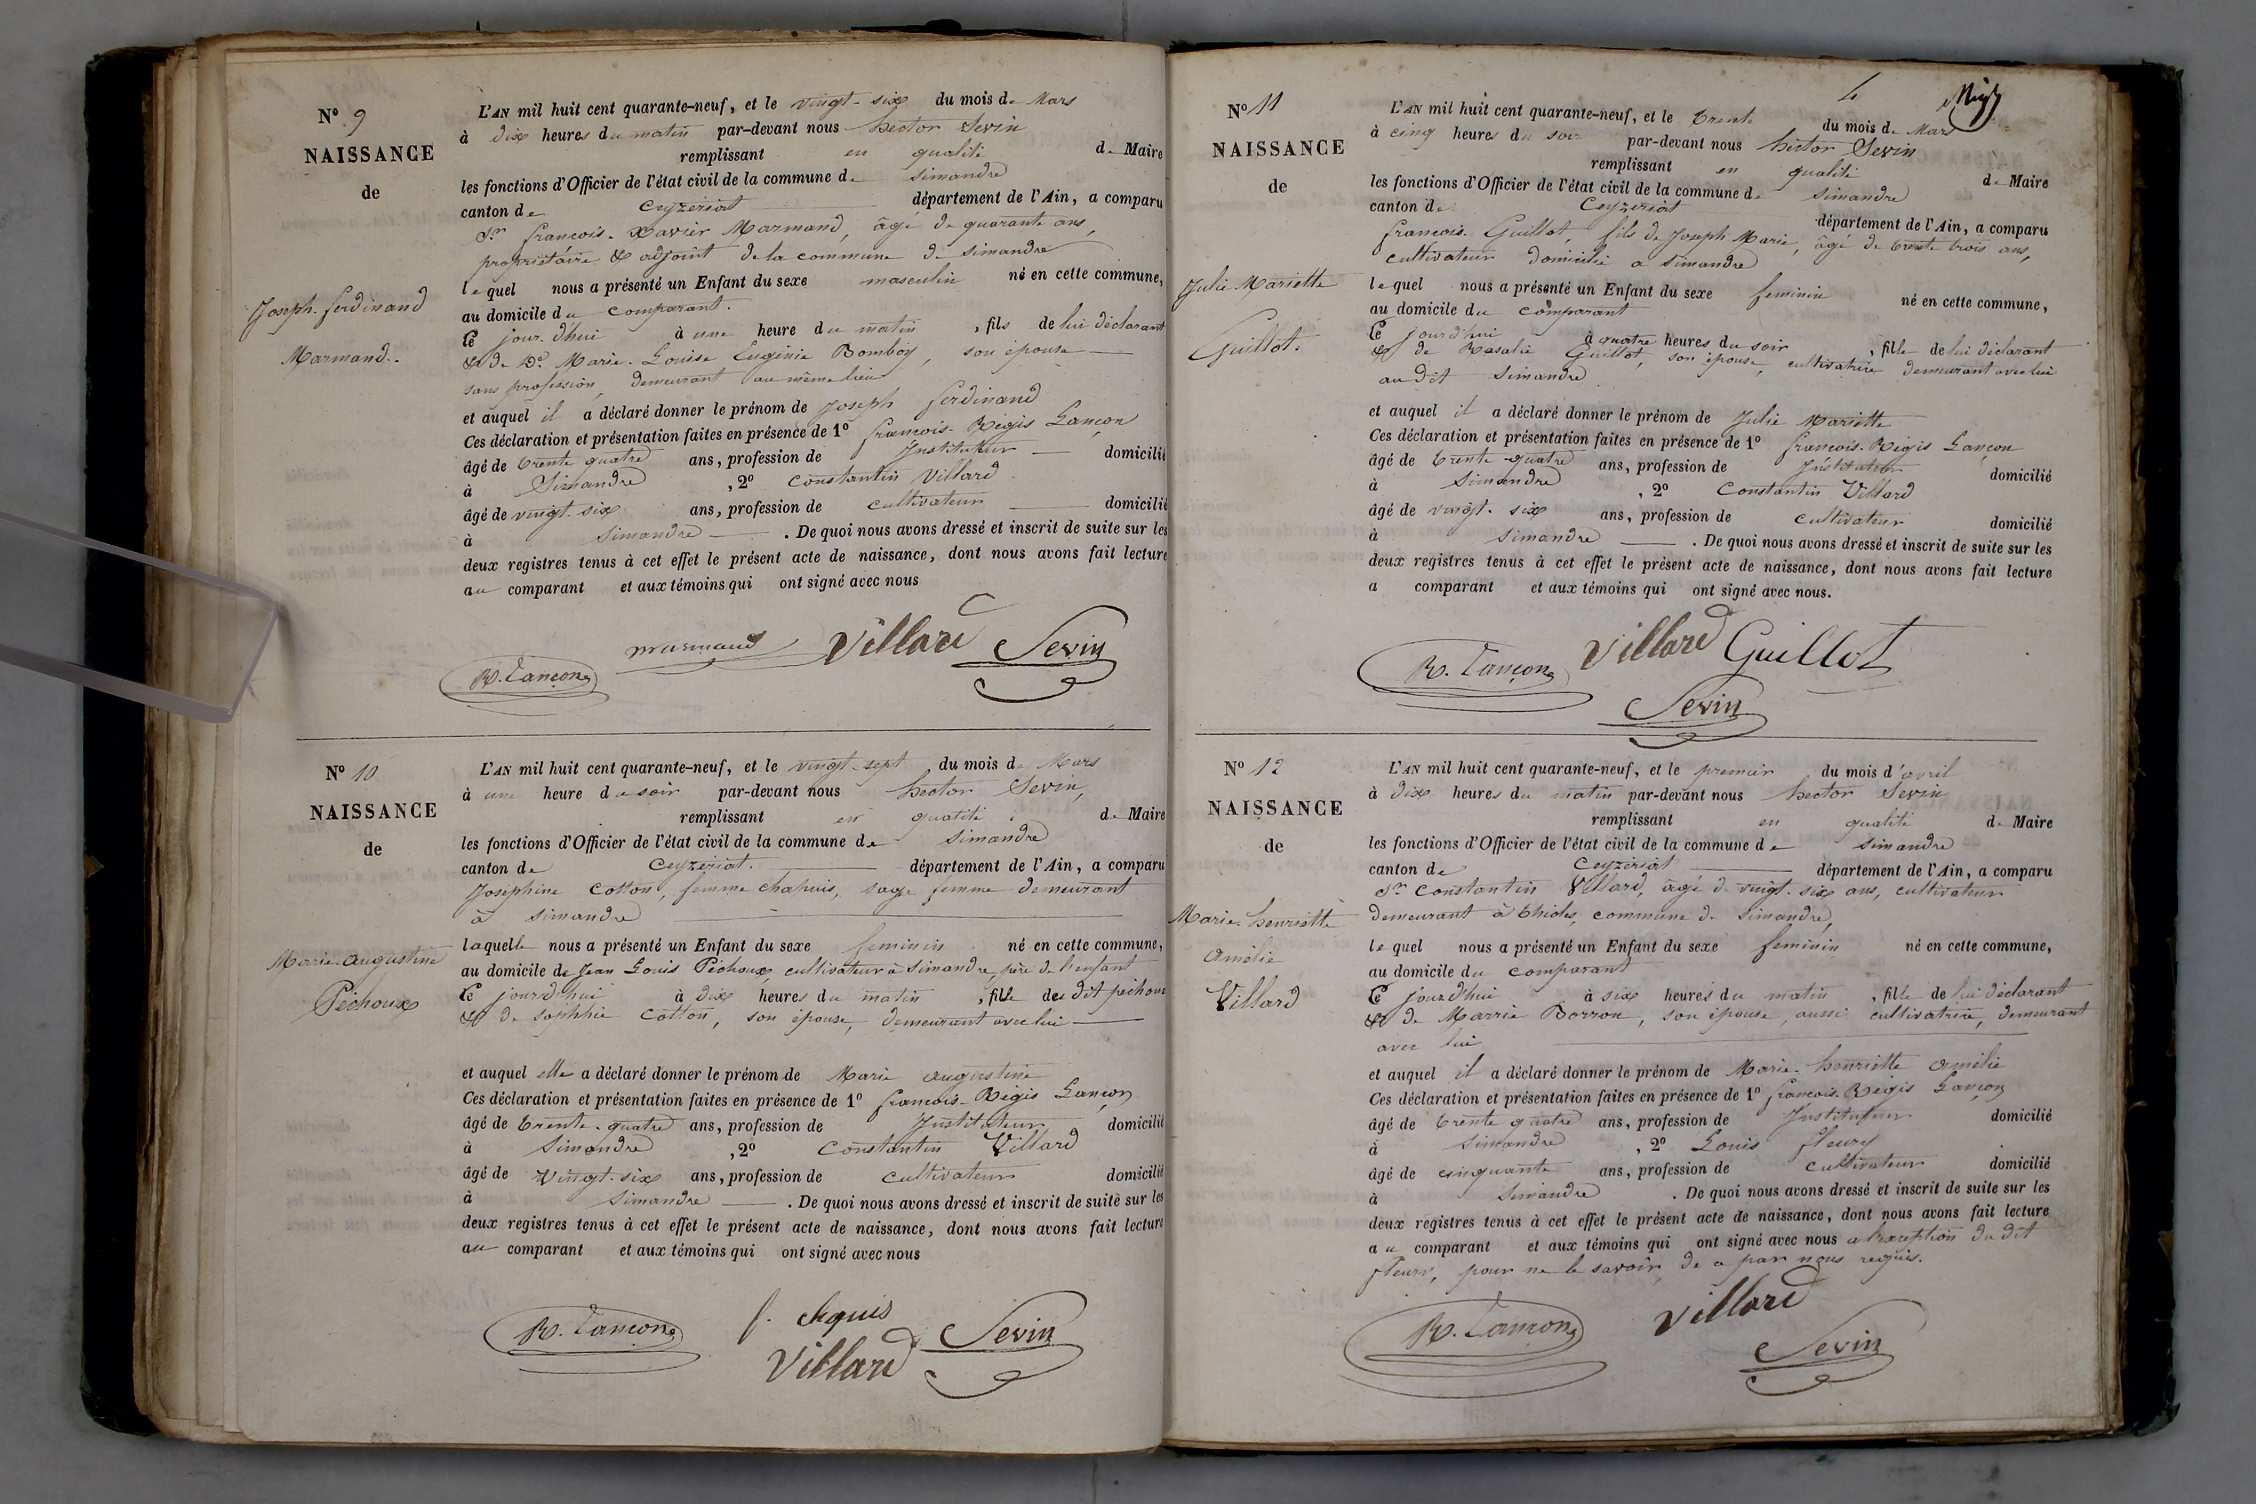 Nº 9
NAISSANCE
de
Joseph-ferdinand
Marmand.
L'AN mil huit cent quarante-neuf, et le vingt-six du mois de Mars
à dix heures du matin par-devant nous hector Sevin
remplissant en qualité de Maire
les fonctions d'Officier de l'état civil de la commune de Simandre
canton de Ceyzériat département de l'Ain, a comparu
Sr francois-Xavier Marmand, âgé de quarante ans,
propriétaire & adjoint de la commune de Simandre
lequel nous a présenté un Enfant du sexe masculin né en cette commune,
au domicile du comparant.
Ce jour-d'hui à une heure du matin, fils de lui déclarant
& de De Marie-Louise Eugénie Bomboy, son épouse
sans profession, demeurant au même lieu
et auquel il a déclaré donner le prénom de Joseph ferdinand
Ces déclaration et présentation faites en présence de 1º francois-Régis Lançon
âgé de trente quatre ans, profession de Instituteur domicilié
à Simandre, 2º Constantin Villard
âgé de vingt-six ans, profession de cultivateur domicilié
à Simandre. De quoi nous avons dressé et inscrit de suite sur les
deux registres tenus à cet effet le présent acte de naissance, dont nous avons fait lecture
au comparant et aux témoins qui ont signé avec nous
R. Lançon marmand Villard Sevin
Nº 10
NAISSANCE
de
Marie-augustine
Péchoux
L'AN mil huit cent quarante-neuf, et le vingt-sept du mois de Mars
à une heure du soir par-devant nous hector Sevin,
remplissant en qualité de Maire
les fonctions d'Officier de l'état civil de la commune de Simandre
canton de Ceyzériat. département de l'Ain, a comparu
Josephine Cotton, femme chapuis, sage femme demeurant
à Simandre
laquelle nous a présenté un Enfant du sexe feminin né en cette commune,
au domicile de Jean Louis Péchoux, cultivateur à Simandre, père de l'enfant
Ce jourd'hui à dix heures du matin, fille des dit péchoux
& de sophhie Cotton, son épouse, demeurant avec lui
et auquel elle a déclaré donner le prénom de Marie augustine
Ces déclaration et présentation faites en présence de 1º francois-Régis Lançon
âgé de trente-quatre ans, profession de Instituteur domicilié
à Simandre, 2º Constantin Villard
âgé de vingt-six ans, profession de cultivateur domicilié
à Simandre. De quoi nous avons dressé et inscrit de suite sur les
deux registres tenus à cet effet le présent acte de naissance, dont nous avons fait lecture
au comparant et aux témoins qui ont signé avec nous
R. Lançon f. Villard Sevin
4
Nº 11
NAISSANCE
de
Julie Mariette
Guillot.
L'AN mil huit cent quarante-neuf, et le trente du mois de Mars
à cinq heures du soir par-devant nous hector Sevin
remplissant en qualité de Maire
les fonctions d'Officier de l'état civil de la commune de Simandre
canton de Ceyzériat département de l'Ain, a comparu
francois Guillot, fils de Joseph Marie, âgé de trente trois ans,
cultivateur domicilié à Simandre
lequel nous a présenté un Enfant du sexe feminin né en cette commune,
au domicile du comparant
Ce jourd'hui à quatre heures du soir, fille de lui déclarant
& de Rosalie Guillot, son épouse, cultivatrice demeurant avec lui
au dit Simandre
et auquel il a déclaré donner le prénom de Julie Mariette
Ces déclaration et présentation faites en présence de 1º francois-Régis Lançon
âgé de trente-quatre ans, profession de Instituteur domicilié
à Simandre, 2º Constantin Villard
âgé de vingt-six ans, profession de cultivateur domicilié
à Simandre. De quoi nous avons dressé et inscrit de suite sur les
deux registres tenus à cet effet le présent acte de naissance, dont nous avons fait lecture
a comparant et aux témoins qui ont signé avec nous.
R. Lançon Villard Guillot
Sevin
Nº 12
NAISSANCE
de
Marie-henriette
Amélie
Villard
L'AN mil huit cent quarante-neuf, et le premier du mois d'avril
à dix heures du matin par-devant nous hector Sevin
remplissant en qualité de Maire
les fonctions d'Officier de l'état civil de la commune de Simandre
canton de Ceyzériat département de l'Ain, a comparu
Sr Constantin Villard, âgé de vingt-six ans, cultivateur
demeurant à thioles, commune de Simandre,
lequel nous a présenté un Enfant du sexe feminin né en cette commune,
au domicile du comparant
Ce jourd'hui à six heures du matin, fille de lui déclarant
& de Marrie Borron, son épouse, aussi cultivatrice, demeurant
avec lui
et auquel il a déclaré donner le prénom de Marie-henriette amélie
Ces déclaration et présentation faites en présence de 1º francois-Régis Lançon
âgé de trente quatre ans, profession de Instituteur domicilié
à Simandre, 2º Louis fleury
âgé de cinquante ans, profession de cultivateur domicilié
à Simandre. De quoi nous avons dressé et inscrit de suite sur les
deux registres tenus à cet effet le présent acte de naissance, dont nous avons fait lecture
au comparant et aux témoins qui ont signé avec nous a l'exception du dit
fleury, pour ne le savoir, de ce par nous requis.
R. Lançon Villard
Sevin